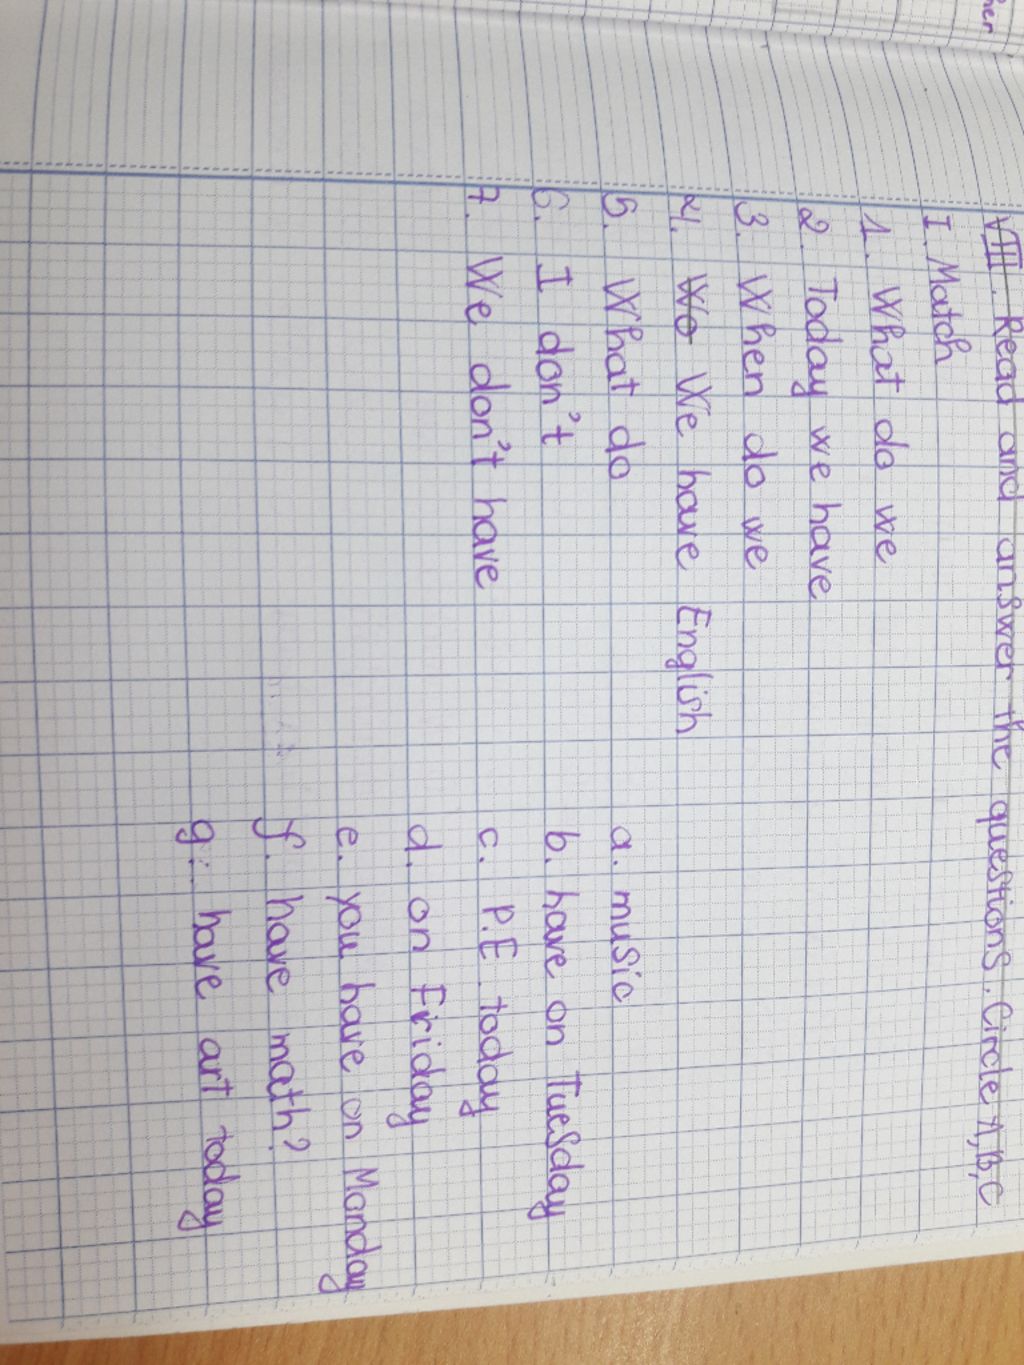 VIII. Read and answer the questions. Circle A,B,C
I. Match
1. What do we
2. Today we have
3. When do we
4. Wo We have English
5. What do
6. I don't
7. We don't have
a. music
b. have on Tuesday
c. P.E today
d. on Friday
e. you have on Monday
f. have math?
g. have art today